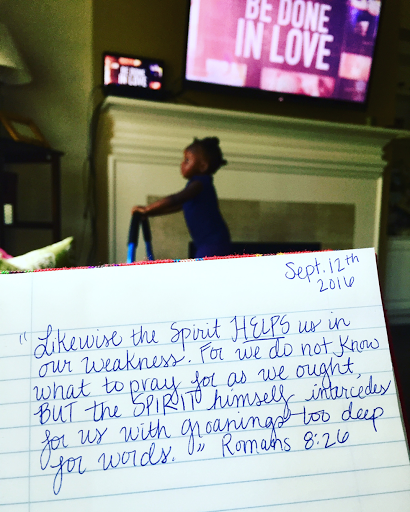 BE DONE
IN LOVE
BE DONE
IN LOVE
Sept. 12th
2016
"Likewise the Spirit HELPS us in
our weakness. For we do not know
what to pray for as we ought,
BUT the SPIRIT himself intercedes
for us with groanings too deep
for words." Romans 8:26